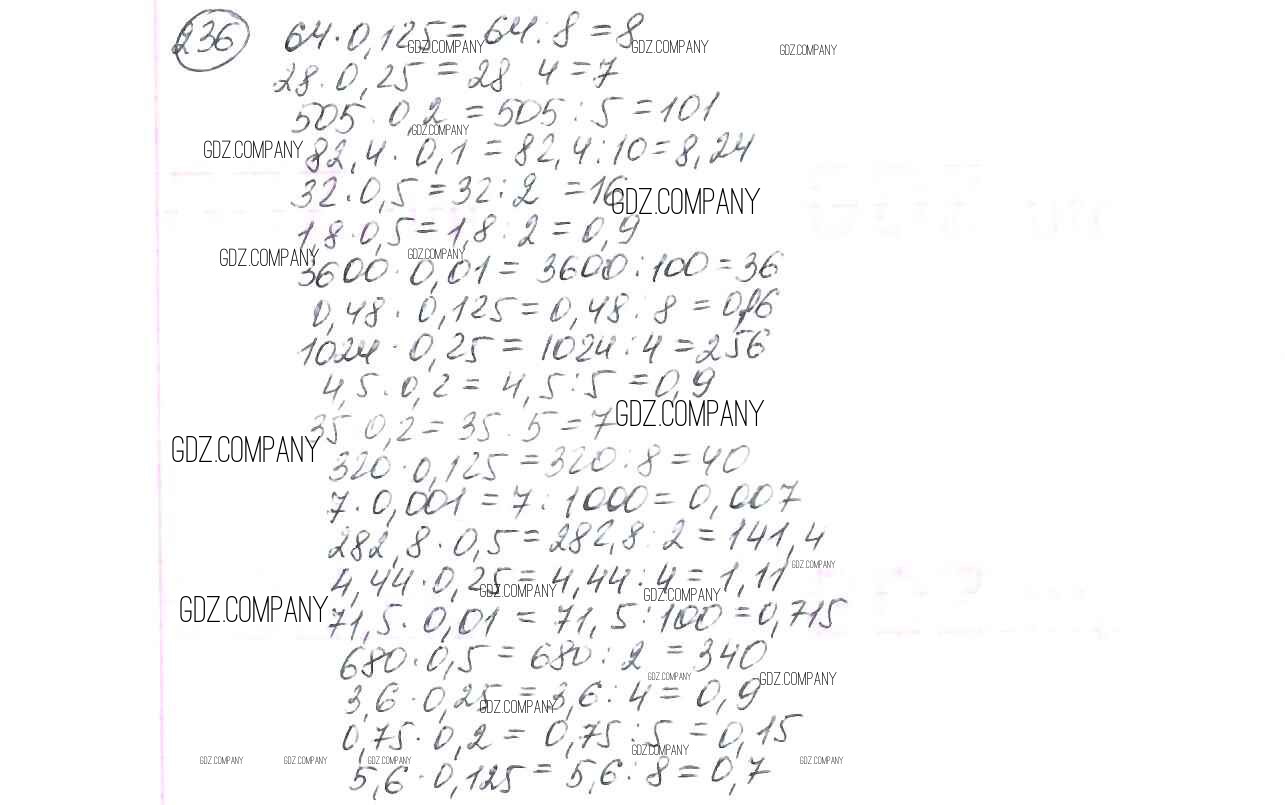 236 64·0,125=64:8=8
GDZ.COMPANY GDZ.COMPANY GDZ.COMPANY
28·0,25=28 4=7
505·0,2=505:5=101
GDZ.COMPANY
GDZ.COMPANY 82,4·0,1=82,4:10=8,24
32·0,5=32:2=16
GDZ.COMPANY
1,8·0,5=1,8:2=0,9
GDZ.COMPANY GDZ.COMPANY
3600·0,01=3600:100=36
0,48·0,125=0,48:8=0,06
1024·0,25=1024:4=256
4,5·0,2=4,5:5=0,9
GDZ.COMPANY
35 0,2=35.5=7
GDZ.COMPANY
320·0,125=320:8=40
7·0,001=7:1000=0,007
282,8·0,5=282,8:2=141,4
GDZ.COMPANY
4,44·0,25=4,44:4=1,11
GDZ.COMPANY GDZ.COMPANY
GDZ.COMPANY 71,5·0,01=71,5:100=0,715
680·0,5=680:2=340
GDZ.COMPANY GDZ.COMPANY
3,6·0,25=3,6:4=0,9
GDZ.COMPANY
0,75·0,2=0,75:5=0,15
GDZ.COMPANY
GDZ.COMPANY GDZ.COMPANY GDZ.COMPANY GDZ.COMPANY
5,6·0,125=5,6:8=0,7